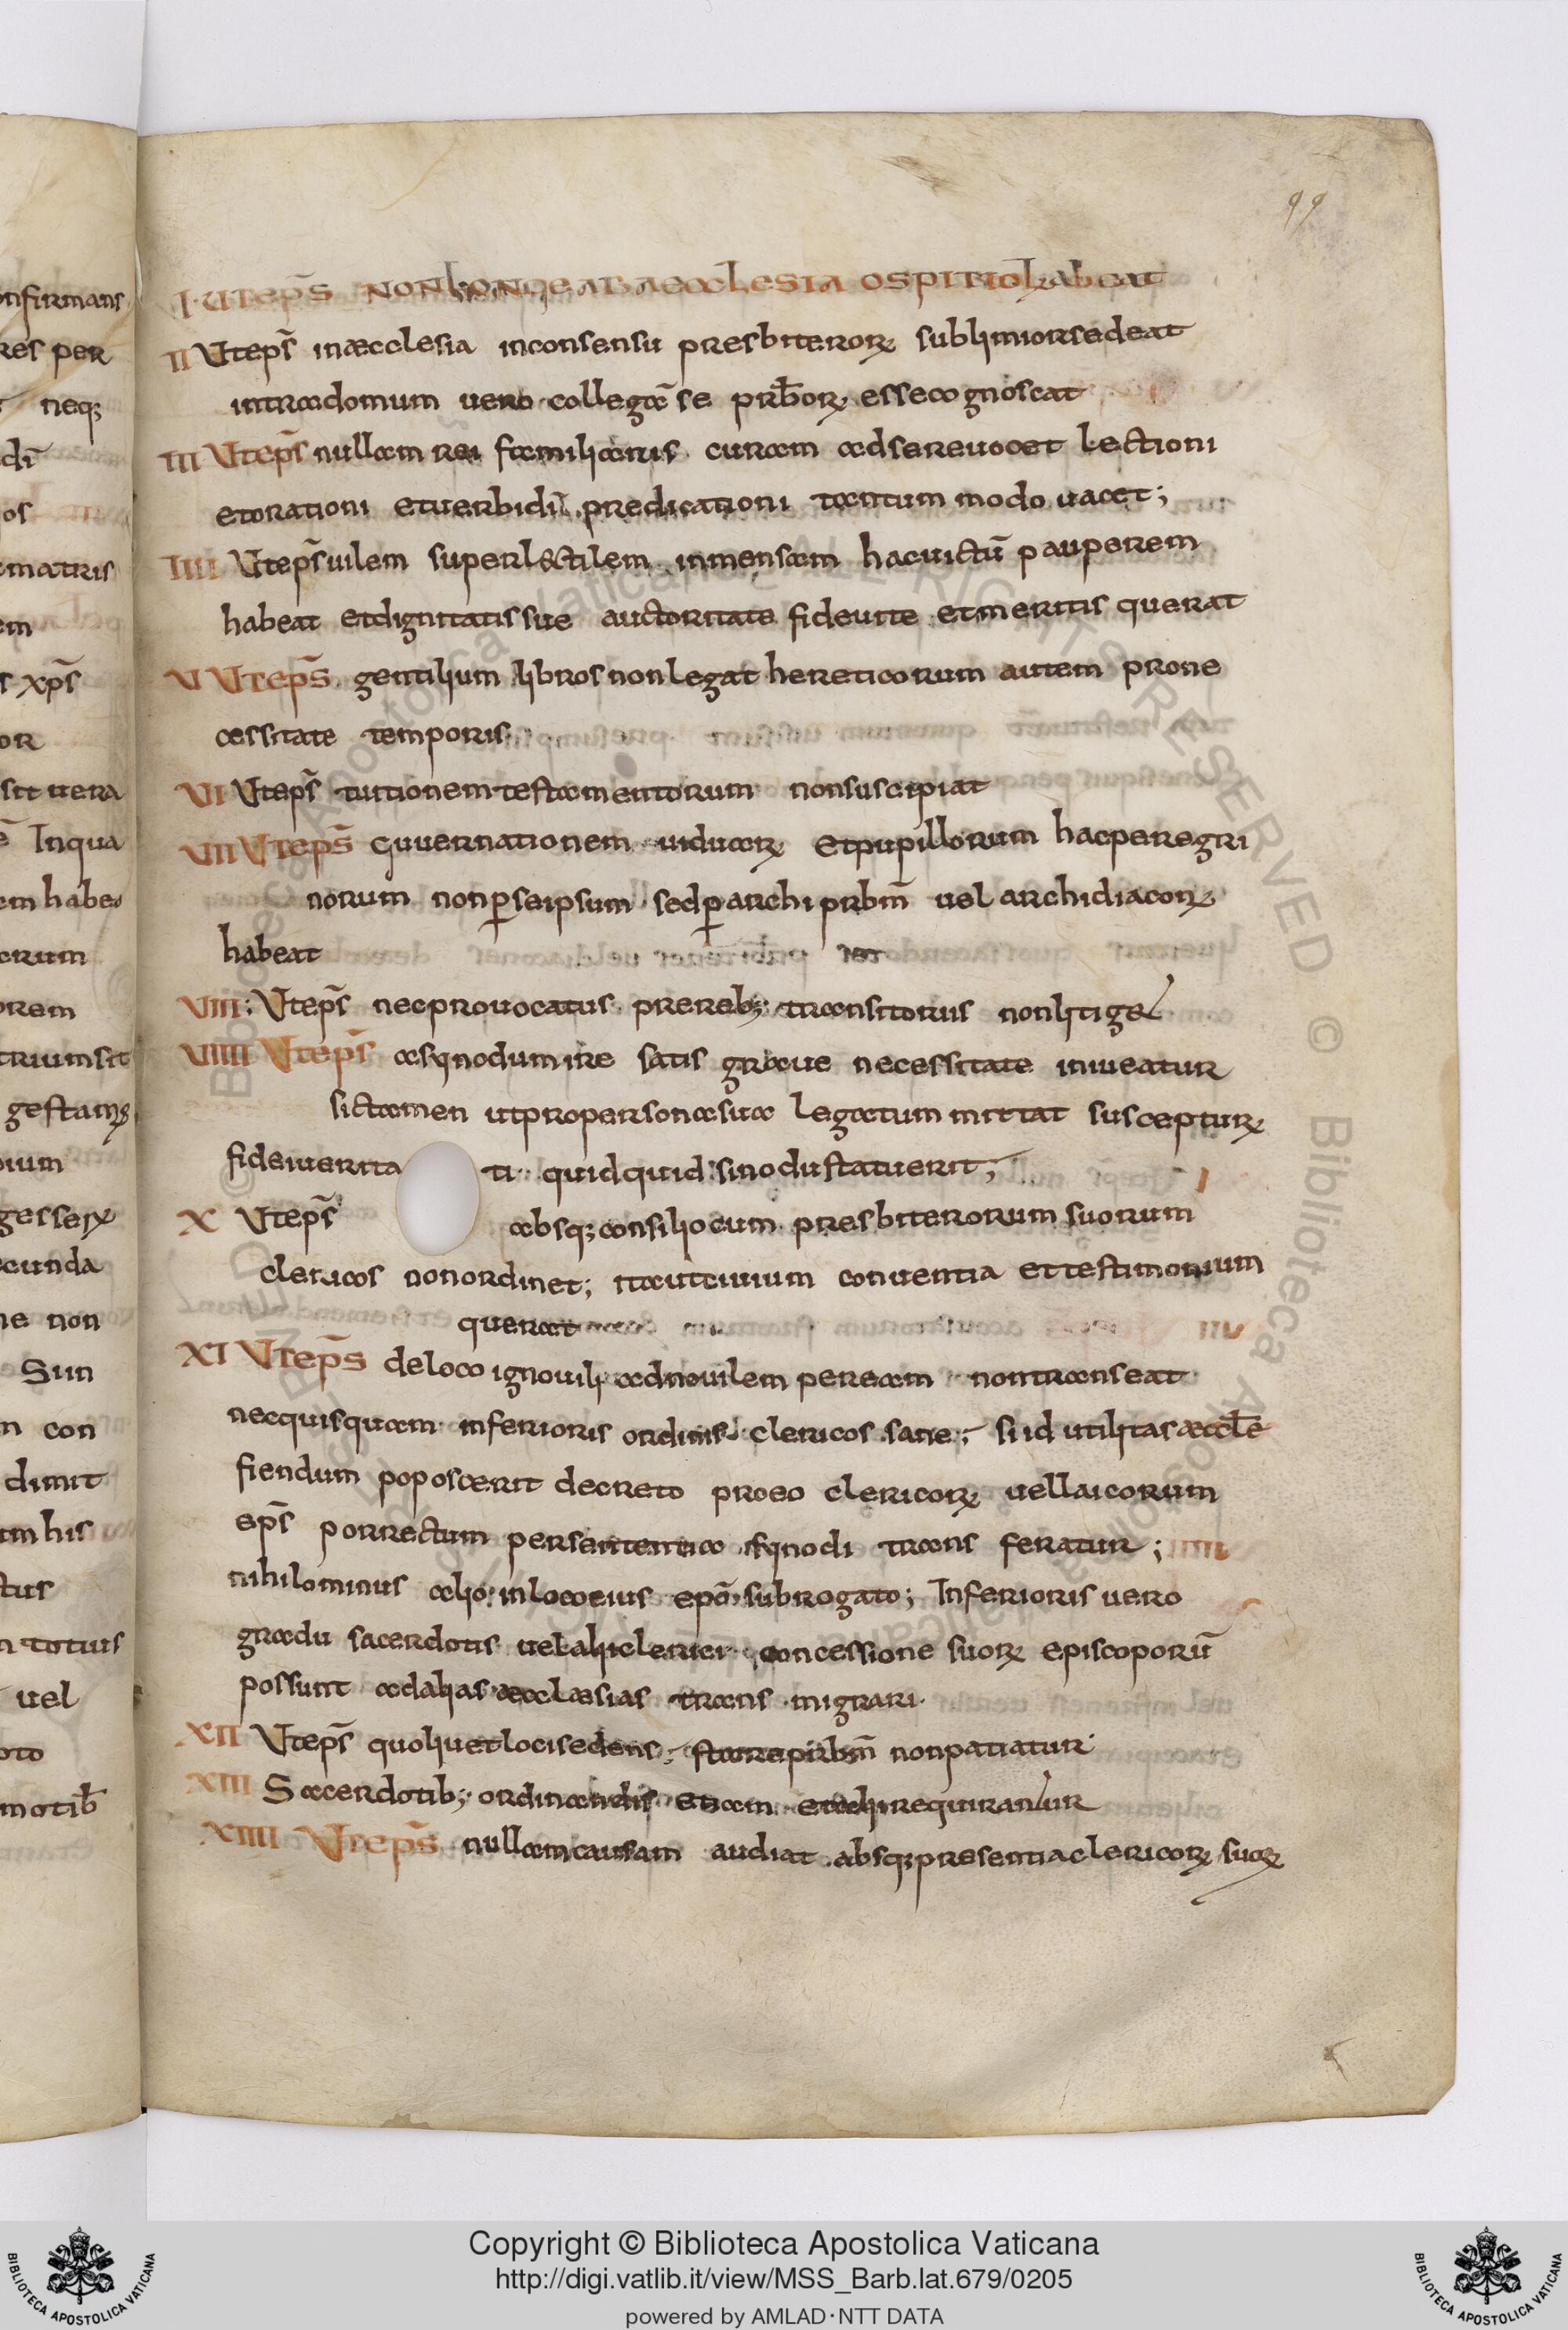 99
I. Utep̄s non longe ab aecclesia ospitiolū habeat
II Utep̄s inæcclesia inconsensu presbiteroꝝ sublimiorsedeat
intradomum uero collegā se prb̄oꝝ esse cognoscat
III Utep̄s nullam rei familiaris curam adsereuocet lectioni
etorationi etuerbidī predicationi tantum modo uacet;
IIII Utep̄s uilem superlectilem inmensam hacuictū pauperem
habeat etdignitatissue auctoritate fideuite etmeritis querat
V Utep̄s gentilium libros nonlegat hereticorum autem prone
cessitate temporis
VI Utep̄s tutionem testamentorum nonsuscipiat
VII Utep̄s Guuernationem uiduaꝝ Etpupillorum hacperegri
norum nonꝑseipsum sedꝑarchiprbm̄ uel archidiaconꝝ
habeat
VIII: Utep̄s necprouocatus prerebꝫ transitoriis nonlitiget
VIIII Utep̄s asynodumire satis graue necessitate iniueatur
sictamen utpropersonasua legatum mittat suscepturꝝ
fideiuerita ti quidquid sinodustatuerit;
X Utep̄s absqꝫ consiliocum presbiterorum suorum
clericos nonordinet; itautciuium conuentia ettestimonium
querat
XI Utep̄s deloco ignouili adnouilem peream nontranseat
necquisquam inferioris ordinis clericos sane; si id utilitas æccl̄e
fiendum poposcerit decreto proeo clericoꝝ uellaicorum
ep̄s porrectum persententia synodi trans feratur;
nihilominus alio inlocoeius epō subrogato; Inferioris uero
gradu sacerdotis uelaliclerici concessione suoꝝ episcoporū
possunt adalias æcclæsias trans migrari
XII Utep̄s quoliuetlocisedens; stareprbm̄ nonpatiatur
XIII Sacerdotibꝫ ordinandis etiam etaalii requirantur
XIIII Utep̄s nullamcausam audiat absqꝫpresentiaclericoꝝ suoꝝ
onfirmans
res per
neqꝫ
dī
os
ematris
em
s xp̄s
or
sit uera
ē Inqua
em habe
orum
orem
triumsit
gestamꝰ
ium
gesseix
cunda
ne non
Sun
n con
dimit
um his
tus
n totius
uel
oto
motib̄
Copyright © Biblioteca Apostolica Vaticana
http://digi.vatlib.it/view/MSS_Barb.lat.679/0205
powered by AMLAD·NTT DATA
BIBLIOTECA APOSTOLICA VATICANA
BIBLIOTECA APOSTOLICA VATICANA